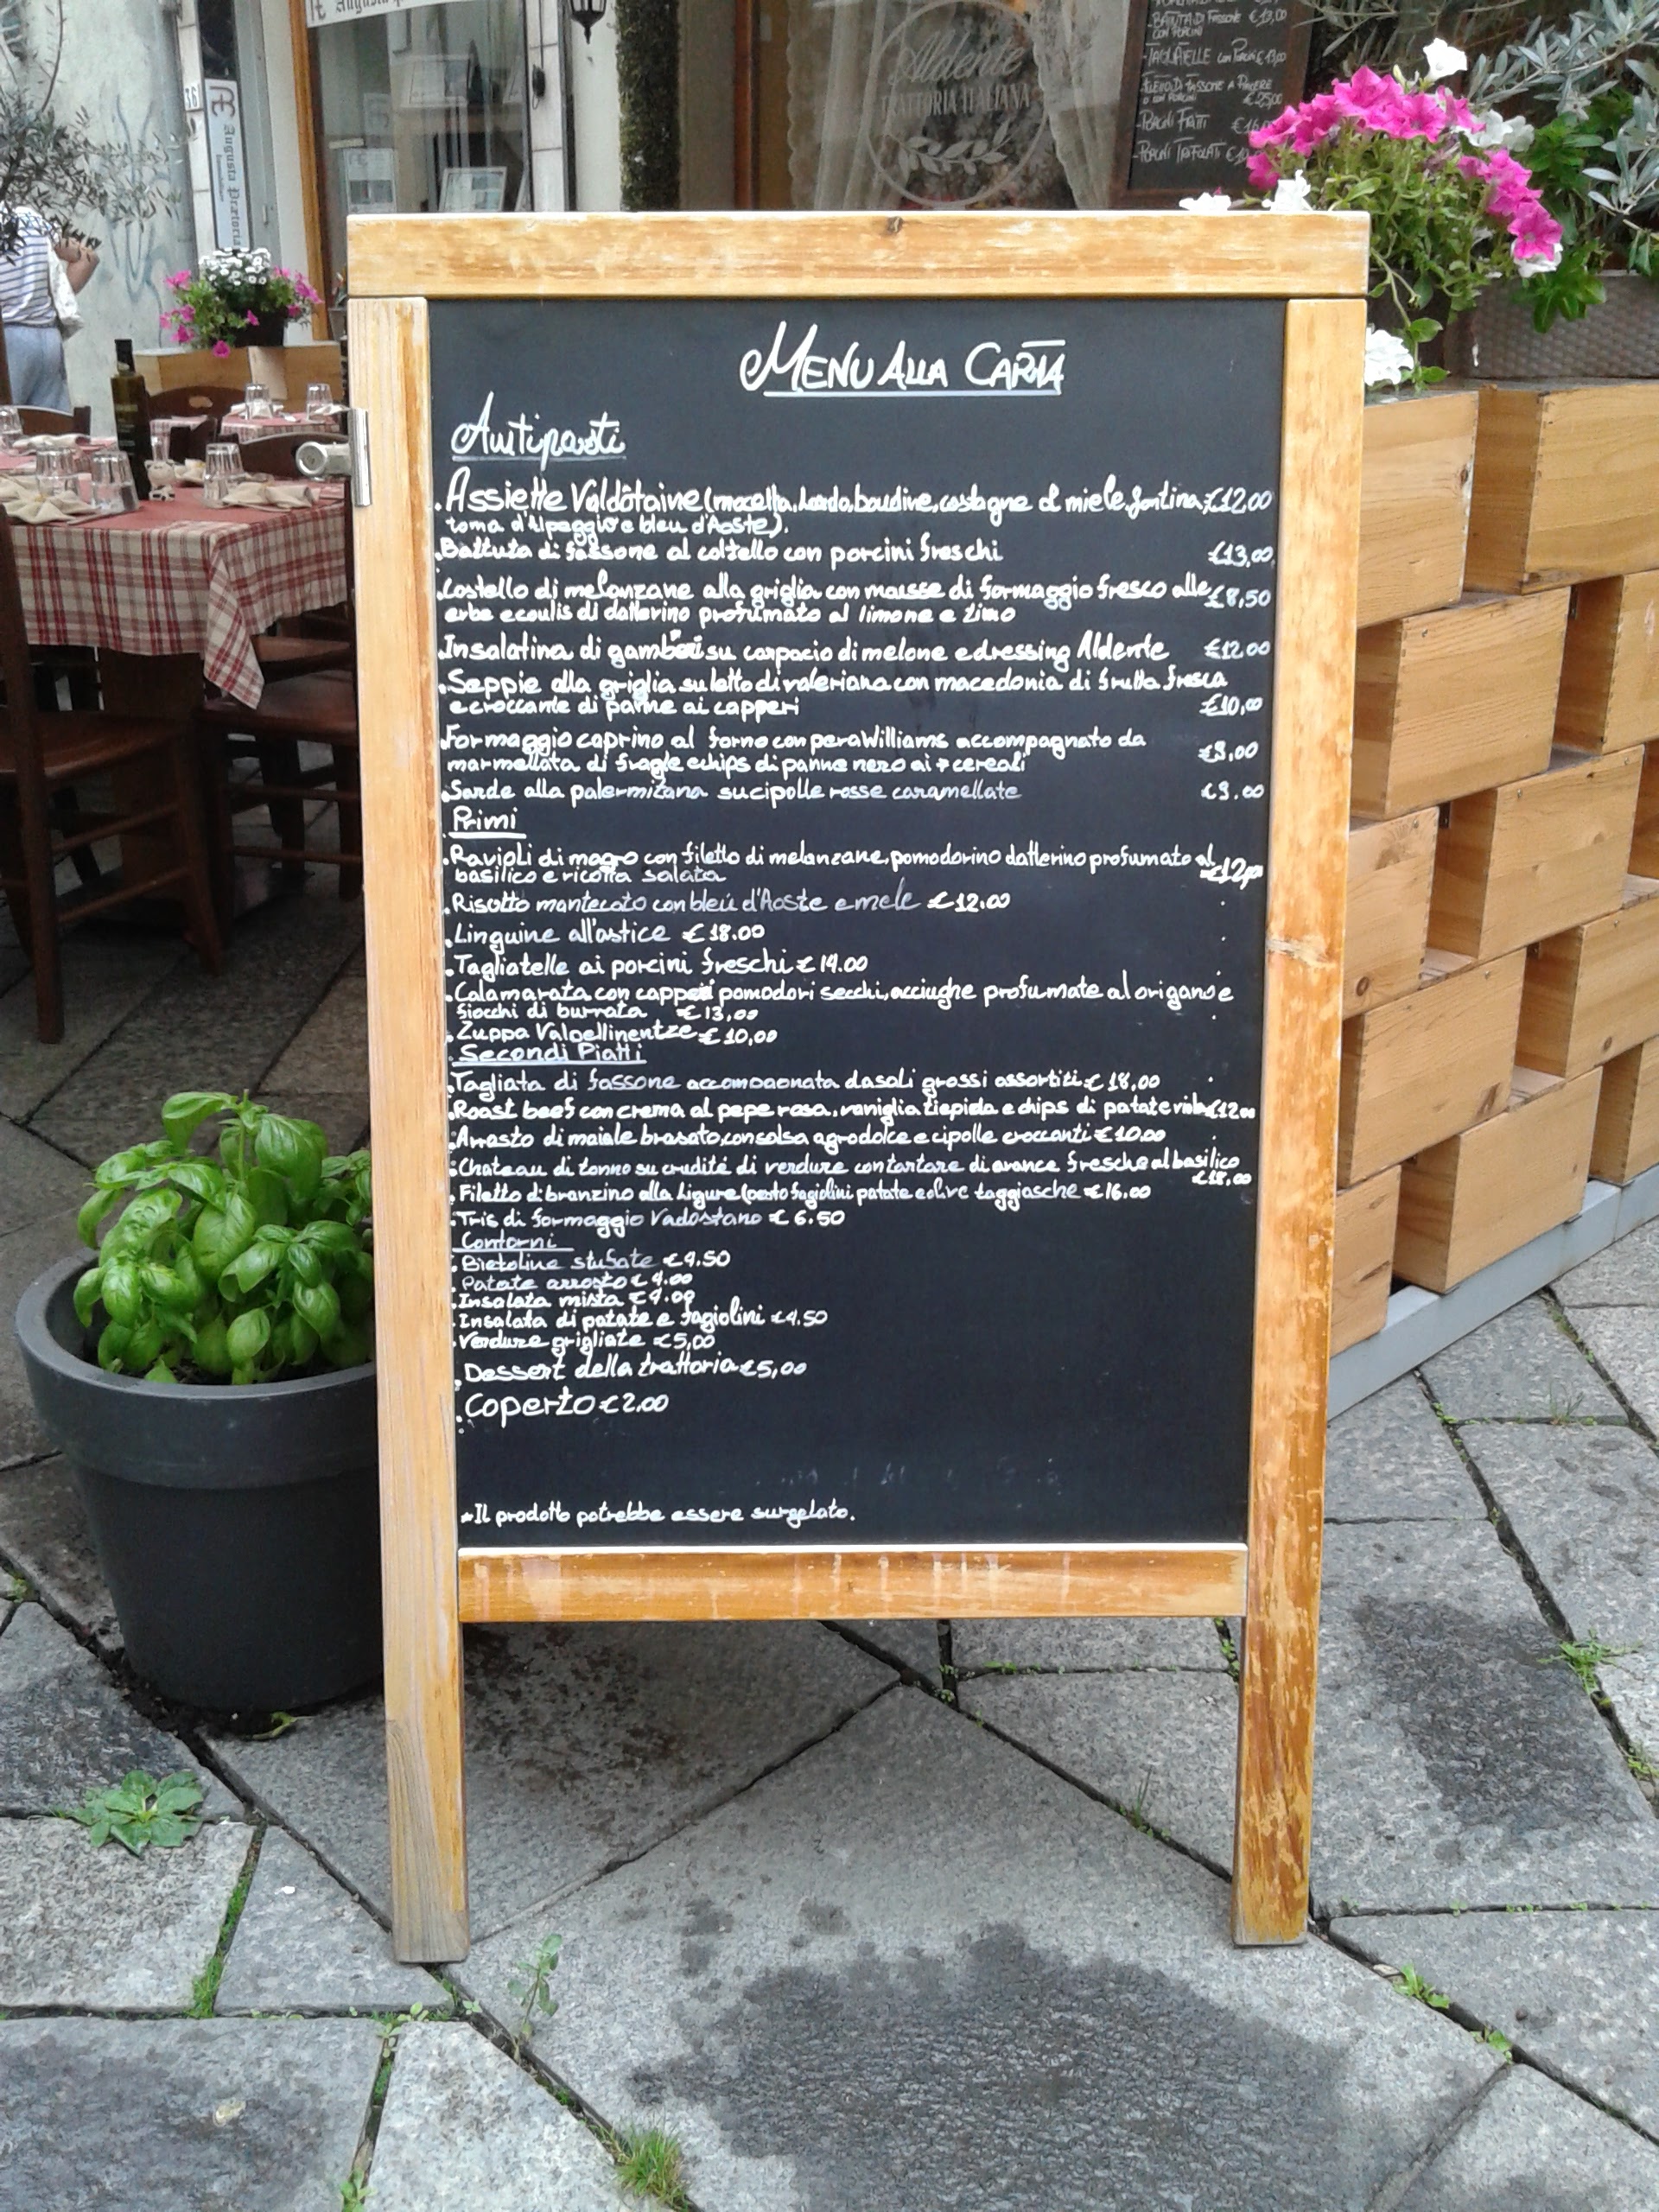 Augusta
36
Augusta Prætoria
Immobiliare
Aldente
TRATTORIA ITALIANA
-BATTUTA DI FASSONE €13,00
CON PORCINI
-TAGLIATELLE con Porcini €13,00
-FILETTO DI FASSONE A PIACERE
O CON PORCINI €25,00
-PORCINI FRITTI €16,00
-PORCINI TRIFOLATI
MENU ALLA CARTA
Antipasti
.Assiette Valdôtaine (mocetta, lardo, boudin, castagne al miele, fontina, €12,00
toma d'Alpeggio e bleu d'Aoste).
.Battuta di fassone al coltello con porcini freschi €13,00
.Costello di melanzane alla griglia con mousse di formaggio fresco alle €8,50
erbe e coulis di datterino profumato al limone e timo
.Insalatina di gamberi su carpacio di melone e dressing Aldente €12.00
.Seppie alla griglia su letto di valeriana con macedonia di frutta fresca
e croccante di panne ai capperi €10,00
.Formaggio caprino al forno con pera Williams accompagnato da €9,00
marmellata di fragle e chips di panne nero ai 7 cereali
.Sarde alla palermitana su cipolle rosse caramellate €9.00
Primi
.Ravioli di magro con filetto di melanzane, pomodorino datterino profumato al €12,00
basilico e ricotta salata
.Risotto mantecato con bleu d'Aoste e mele €12.00
.Linguine all'astice €18.00
.Tagliatelle ai porcini freschi €14.00
.Calamarata con capperi pomodori secchi, acciughe profumate al origano e
fiocchi di burrata €13,00
.Zuppa Valpellinentze €10,00
Secondi Piatti
.Tagliata di fassone accompagnata da sali grossi assortiti €18,00
.Roast beef con crema al pepe rosa, vaniglia tiepida e chips di patate viola €12.00
.Arrosto di maiale brasato, con salsa agrodolce e cipolle croccanti €10.00
.Chateau di tonno su crudité di verdure con tartare di arance fresche al basilico
€18,00
.Filetto di branzino alla Ligure (pesto fagiolini patate e olive taggiasche €16.00
.Tris di formaggio Vadostano €6.50
Contorni
.Bietoline stufate €4.50
.Patate arrosto €4.00
.Insalata mista €4.00
.Insalata di patate e fagiolini €4.50
.Verdure grigliate €5,00
.Dessert della trattoria €5,00
.Coperto €2.00
*Il prodotto potrebbe essere surgelato.